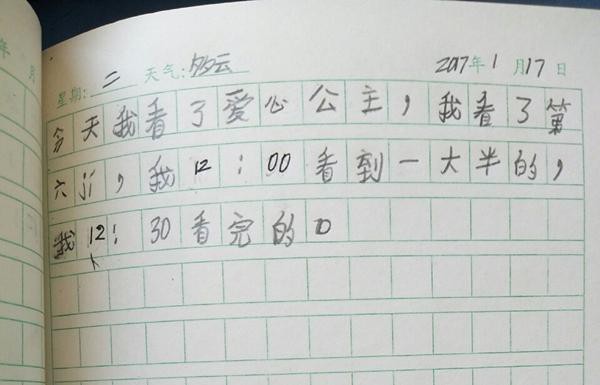 年 月
星期: 二 天气: 多云 2017年1月17日
今天我看了爱心公主，我看了第
六ji，我12:00看到一大半的，
我12:30看完的。